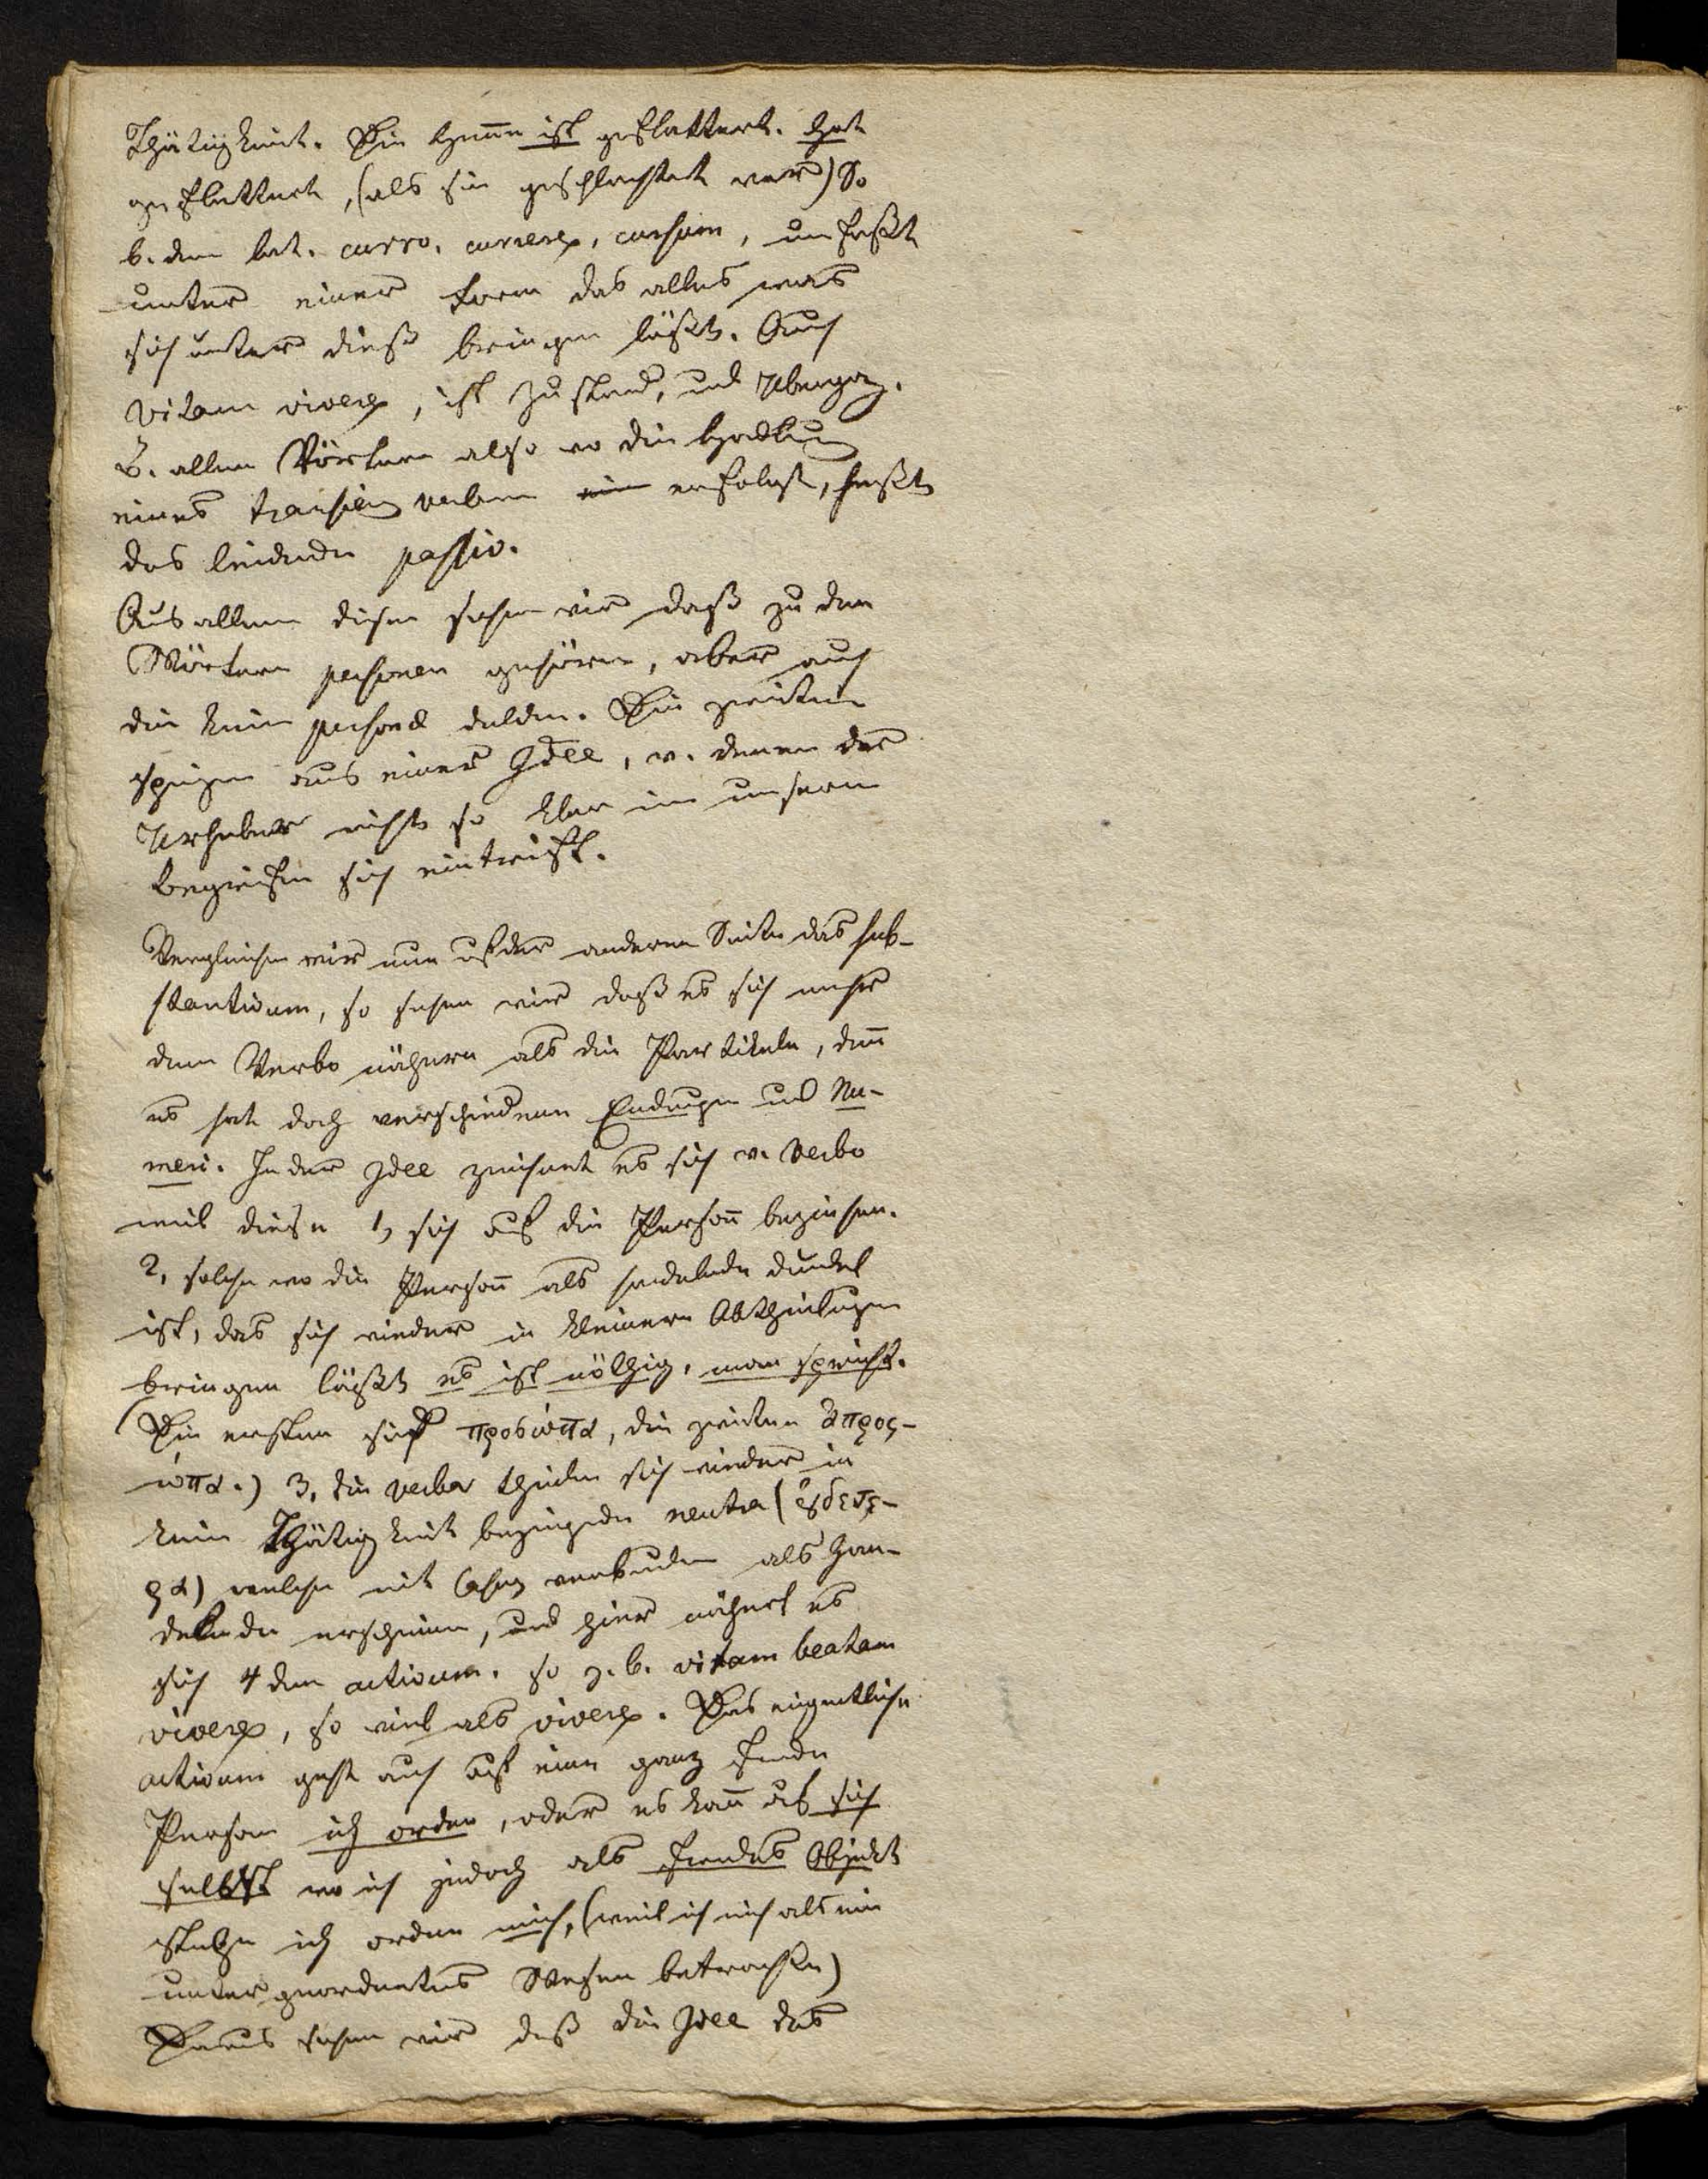 Thätigkeit. Die Henne ist geflattert. Hat
geflattert, (als sie geschlachtet war) So
b. dem lat. curro, currere, cursum, umfaßt
unter einer Form das alles was
sich unter dieß bringen läßt. Auch
vitam vivere, ist Zustand, und Ubergang.
B. allen Wörtern also wo die Handlung
eines transitiven verbum erfolgt, heißt
das leidende passiv.
Aus allem diesen sehen wir daß zu den
Wörtern personen gehören, aber auch
die keine person dulden. Die zweiten
steigen aus einer Idee, v. denen der
Urheber nicht so klar in unsere
Begriffen sich eintrifft.
Vergleichen wir nun auf der anderen Seite das sub-
stantivum, so sehen wir daß es sich mehr
dem Verbo nähern als die Partikeln, denn
es hat doch verschiedene Endungen und Nu-
meri. In der Idee zeichnet es sich v. Verbo
weil diese 1, sich auf die Person beziehen.
2, solche wo die Person als handelnde dunkel
ist, das sich wieder in kleinere Abtheilungen
bringen läßt es ist nöthig, man spricht.
(Die ersten sind προσώπα, die zweiten ἀπρος-
ώπα.) 3, die verba theilen sich wieder in
keine Thätigkeit bezeigende neutra (οὐδετε-
ρα) welche mit Casus verbunden als han-
delnde erscheinen, und hier nähert es
sich 4 dem activum. so z. b. vitam beatam
vivere, so viel als vivere. Das eigentliche
activum geht auch auf eine ganz fremde
Person ich ordne, oder es kann auf sich
selbst wo ich jedoch als fremdes Objekt
stehe ich ordne mich, (weil ich mich als ein
untergeordnetes Wesen betrachte)
Daraus sehen wir daß die Idee des